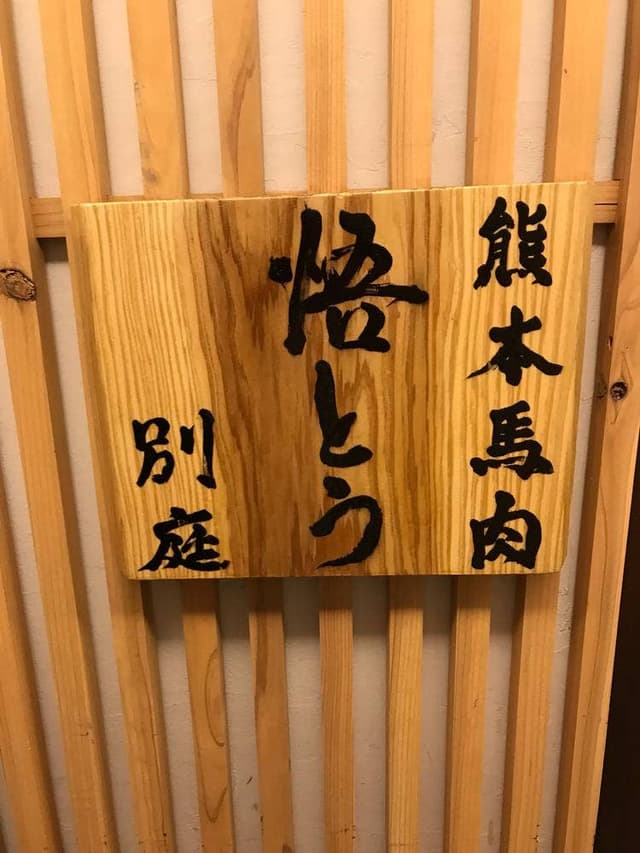 熊本馬肉
悟とう
別庭